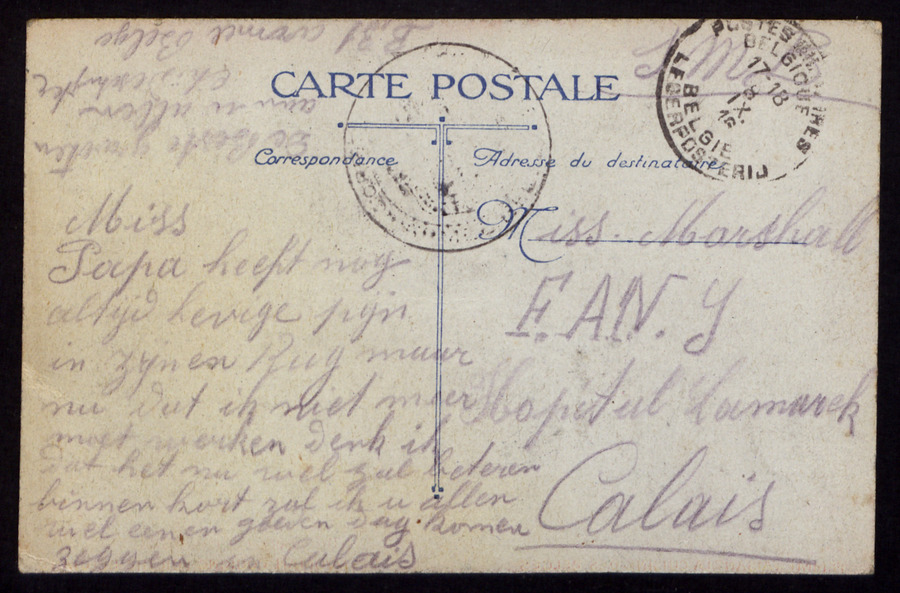 CARTE POSTALE
Correspondance
Adresse du destinataire
POSTES MILITAIRES
BELGIQUE
17-18
8
IX.
16
BELGIE
LEGERPOSTERIJ
S.M.
Miss
Papa heeft nog
altijd hevige pijn
in zijnen Rug maar
nu dat ik niet meer
moet werken Denk ik
dat het nu wel zal beteren
binnen kort zal ik u allen
wel eenen goeden dag komen
zeggen in Calais
De Beste groeten
aan u allen
B,31 armée Belge
Miss. Marshall
F.A.N.Y
Hopital Lamarck
Calais